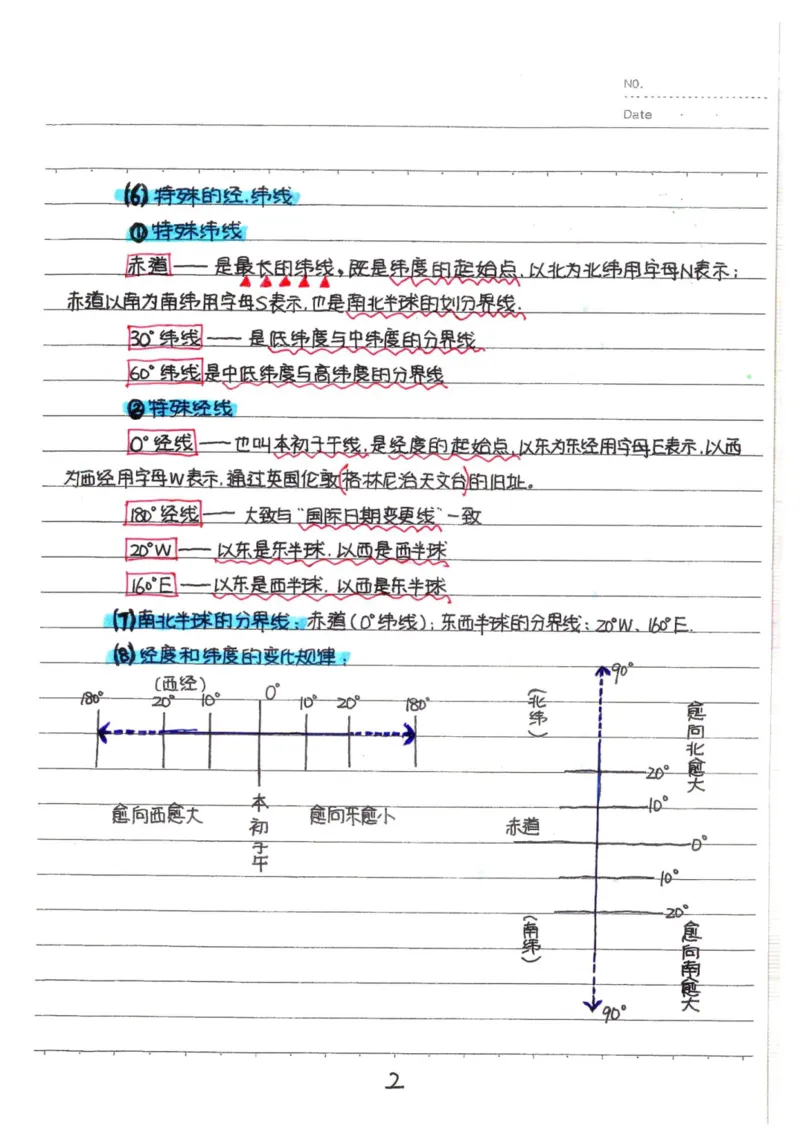 NO.
Date
(6) 特殊的经.纬线
① 特殊纬线
赤道 —— 是最长的纬线。既是纬度的起始点,以北为北纬用字母N表示;
赤道以南为南纬用字母S表示,也是南北半球的划分界线.
30°纬线 —— 是低纬度与中纬度的分界线
60°纬线是中低纬度与高纬度的分界线
② 特殊经线
0°经线 —— 也叫本初子午线,是经度的起始点,以东为东经用字母E表示,以西
为西经用字母W表示,通过英国伦敦(格林尼治天文台)的旧址。
180°经线 —— 大致与"国际日期变更线"一致
20°W —— 以东是东半球,以西是西半球
160°E —— 以东是西半球,以西是东半球
(7)南北半球的分界线: 赤道(0°纬线); 东西半球的分界线: 20°W、160°E.
(8) 经度和纬度的变化规律:
(西经)
180° 20° 10° 0° 10° 20° 180°
愈向西愈大 愈向东愈小
本初子午
90°
(北纬)
愈向北愈大
20°
10°
赤道 0°
10°
20°
(南纬)
愈向南愈大
90°
2